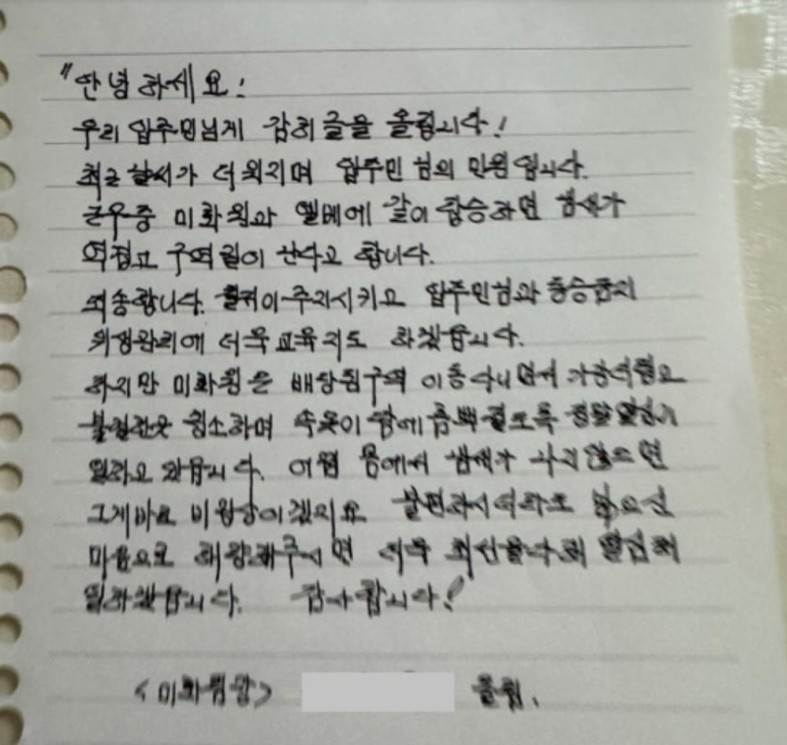 "안녕하세요!
우리 입주민님게 감히 글을 올립니다!
최근 날씨가 더워지며 입주민 님의 민원입니다.
근무중 미화원과 엘베에 같이 탑승하면 냄새가
역겹고 구역질이 난다고 합니다.
죄송합니다. 주지시키고 입주민님과 동승금지
위생관리에 더욱 교육지도 하겠습니다.
하지만 미화원은 배당된구역 이동다니면서
불결한곳 청소하며 속옷이 땀에 흠뻑 젖도록 정말 열심히
일하고 있습니다. 어찌 몸에서 냄새가 나지않으면
그게바로 비정상이겠지요 불편하시더라도 넓으신
마음으로 해량해주시면 더욱 최선을다해 열심히
일하겠습니다. 감사합니다!
<미화팀장> 올림.